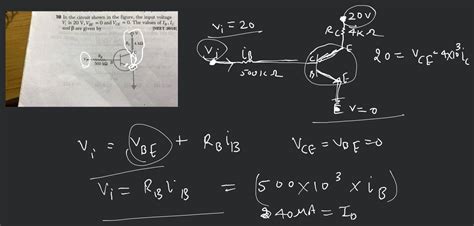 30 In the circuit shown in the figure, the input voltage
Vi is 20 V, VBE = 0 and VCE = 0. The values of IB, IC
and β are given by [NEET 2018]
20 V
RC 4 kΩ
Vi RB
500 kΩ
C
B
E
vi = 20
20V
RC 4KΩ
Vi iB
500KΩ
C
B
E
V=0
20 = VCE - 4×10³ic
Vi = VBE + RB iB
VCE = VBE = 0
Vi = RB iB = (500×10³ × iB)
40MA = IB